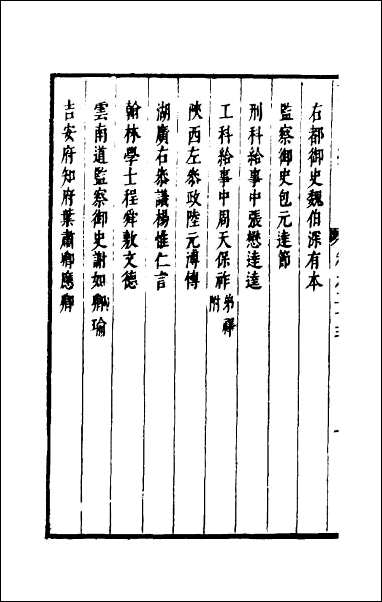 右都御史魏伯深有本
監察御史包元達節
刑科給事中張懋達逵
工科給事中周天保祚弟禪附
陝西左叅政陸元溥傅
湖廣右叅議楊惟仁言
翰林學士程舜敷文德
雲南道監察御史謝如卿瑜
吉安府知府葉肅卿應